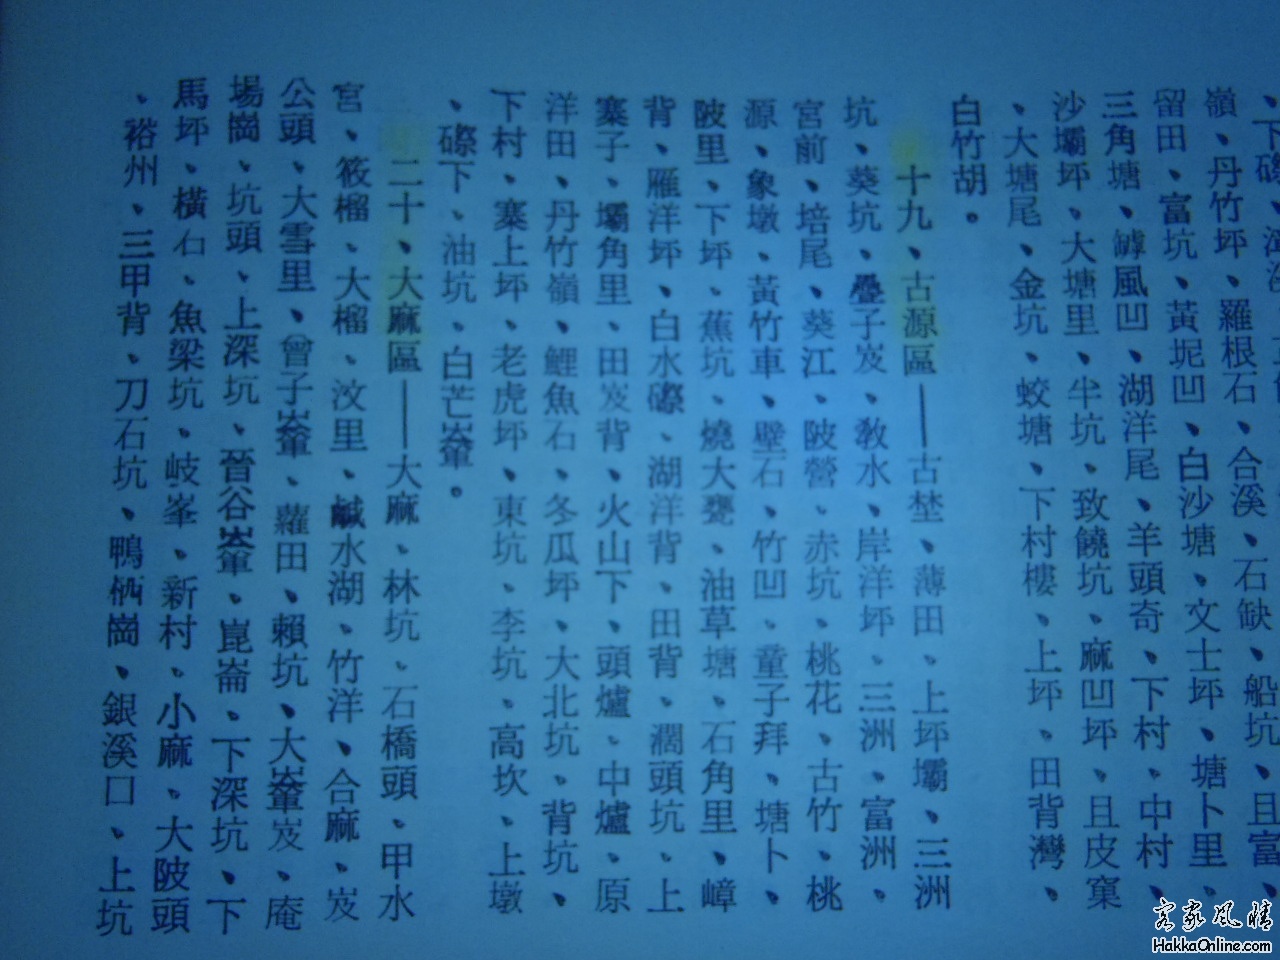 、下磜、
嶺、丹竹坪、羅根石、合溪、石缺、船坑、且富、
留田、富坑、黃坭凹、白沙塘、文士坪、塘卜里、
三角塘、罅風凹、湖洋尾、羊頭奇、下村、中村、
沙壩坪、大塘里、半坑、致饒坑、麻凹坪、且皮窠
、大塘尾、金坑、蛟塘、下村樓、上坪、田背灣、
白竹胡。
十九、古源區——古埜、薄田、上坪壩、三洲
坑、葵坑、疊子岌、教水、岸洋坪、三洲、富洲、
宮前、培尾、葵江、陂營、赤坑、桃花、古竹、桃
源、象墩、黃竹車、壁石、竹凹、童子拜、塘卜、
陂里、下坪、蕉坑、燒大甕、油草塘、石角里、嶂
背、雁洋坪、白水磜、湖洋背、田背、濶頭坑、上
寨子、壩角里、田岌背、火山下、頭爐、中爐、原
洋田、丹竹嶺、鯉魚石、冬瓜坪、大北坑、背坑、
下村、寨上坪、老虎坪、東坑、李坑、高坎、上墩
、磜下、油坑、白芒輋。
二十、大麻區——大麻、林坑、石橋頭、甲水
宮、筱榴、大榴、汶里、鹹水湖、竹洋、合麻、岌
公頭、大雪里、曾子輋、蘿田、賴坑、大輋岌、庵
場崗、坑頭、上深坑、晉谷輋、崑崙、下深坑、下
馬坪、橫石、魚梁坑、岐峯、新村、小麻、大陂頭
、裕州、三甲背、刀石坑、鴨栖崗、銀溪口、上坑
客家風情
HakkaOnline.com